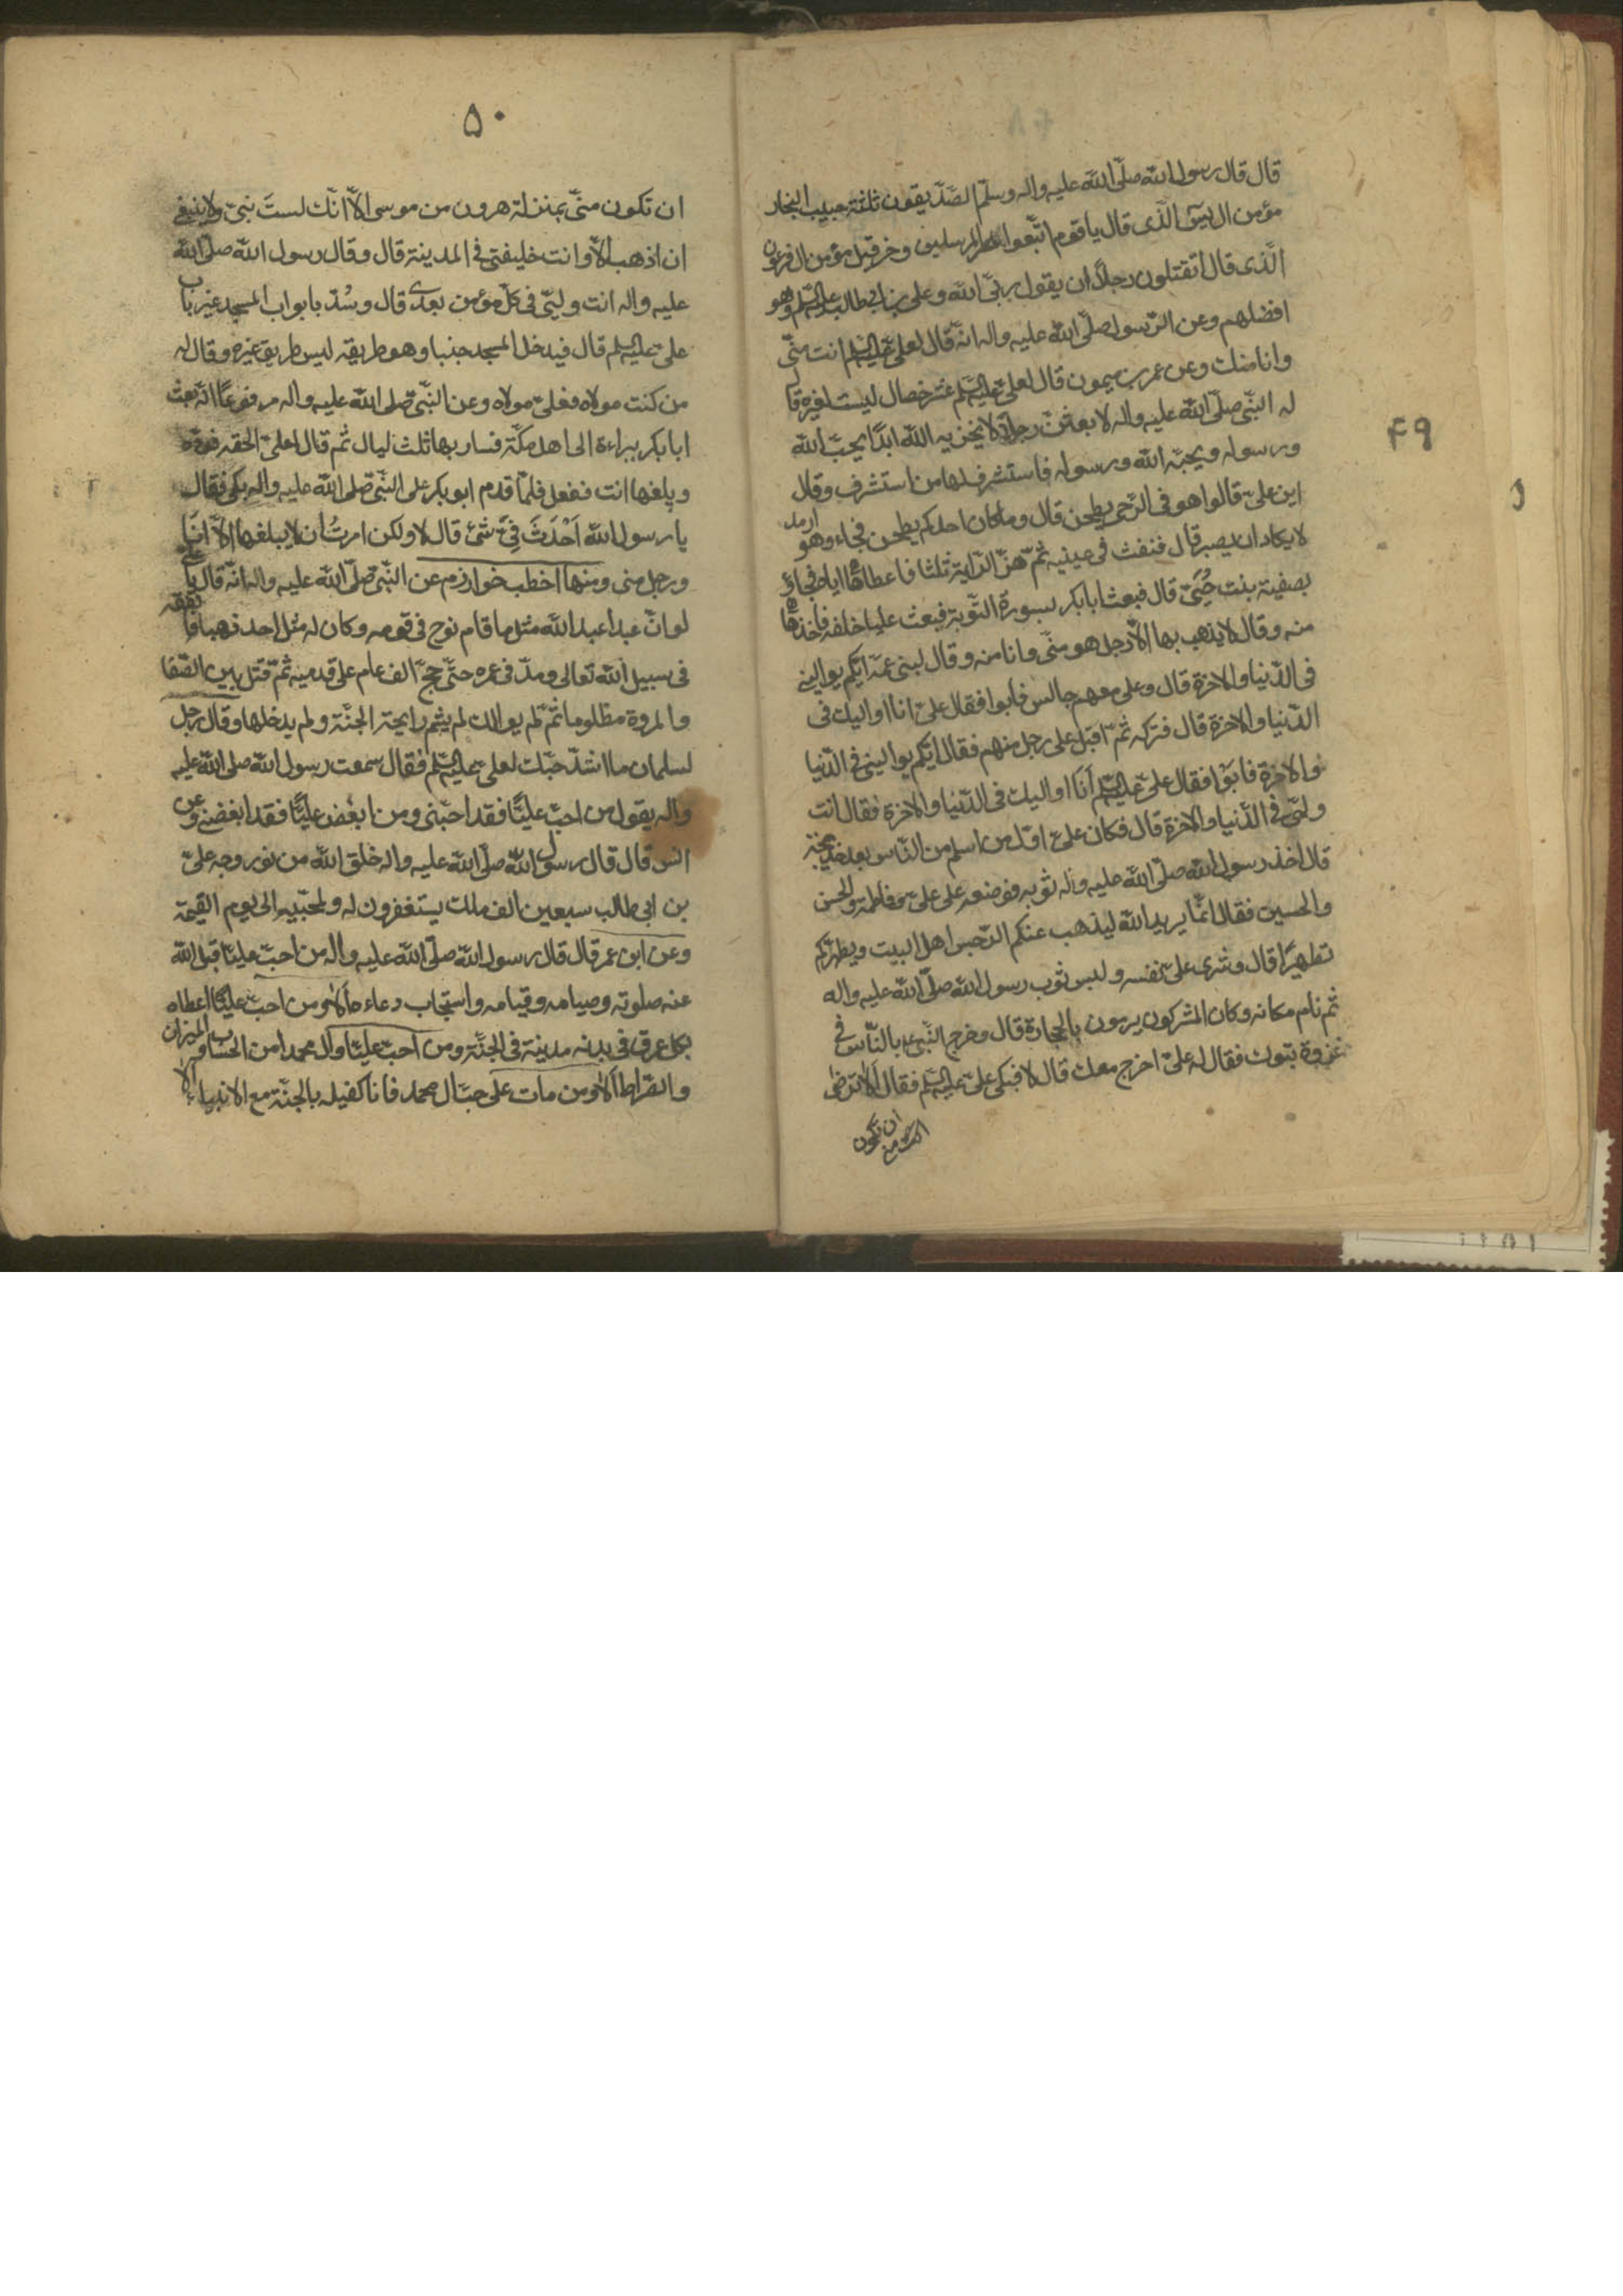 ۴۹
قال قال رسول الله صلّى الله عليه واله وسلّم الصّدّيقون ثلثة حبيب النجار
مؤمن ال يسۤ الّذى قال يا قوم اتّبعوا المرسلين وخرقيل مؤمن ال فرعون
الّذى قال اتقتلون رجلاً ان يقول ربّى الله وعلى بن ابى طالب عليه السّلم وهو
افضلهم وعن الرّسول صلّى الله عليه واله انّه قال لعلىّ عليه السّلم انت منّى
وانا منك وعن عمر بن ميمون قال لعلىّ عليه السّلم عشر خصال ليست لغيره قال
له النبّى صلّى الله عليه واله لابعثنّ رجلاً لا يخزيه الله ابدًا يحبّ الله
ورسوله ويحبّه الله ورسوله فاستشرف لها من استشرف وقال
اين علىّ قالوا هو فى الرّحى يطحن قال وما كان احدكم يطحن فجاء وهو ارمد
لا يكاد ان يبصر قال فنفث فى عينيه ثمّ هزّ الرّاية ثلثا فاعطاها ايّاه فجاؤ
بصفية بنت حُيَىّ قال فبعث ابا بكر بسورة التّوبة فبعث عليا خلفه فاخذها
منه وقال لا يذهب بها الاّ رجل هو منّى وانا منه وقال لبنى عمّه ايّكم يوالينى
فى الدّنيا والاخرة قال وعلى معهم جالس فابوا فقال علىّ انا اواليك فى
الدّنيا والاخرة قال فتركه ثمّ اقبل على رجل منهم فقال ايّكم يوالينى فى الدّنيا
والاخرة فابوا فقال علىّ عليه السّلم اَنَا اواليك فى الدّنيا والاخرة فقال انت
وليّى فى الدّنيا والاخرة قال فكان علىّ اوّل من اسلم من النّاس بعد خديجة
قال اخذ رسول الله صلّى الله عليه واله ثوبه فوضعه على علىّ وفاطمة والحسن
والحسين فقال انّما يريد الله ليذهب عنكم الرّجس اهل البيت ويطهّركم
تطهيرًا قال وشرى علىّ نفسه ولبس ثوب رسول الله صلّى الله عليه واله
ثم نام مكانه وكان المشركون يرمون بالحجارة قال وخرج النّبىّ بالنّاس فى
غزوة تبوك فقال له علىّ اخرج معك قال لا فبكى علىّ عليه السّلم فقال اَلا ترضى
ان تكون
۵۰
ان تكون منّى بمنزلة هرون من موسى الاّ انّك لستَ نبىّ ولا ينبغى
ان اذهب الاّ وانت خليفتى فى المدينة قال وقال رسول الله صلّى الله
عليه واله انت وليّى فى كلّ مؤمن بعدى قال وسُدّ بابواب المسجد غير باب
علىّ عليه السّلم قال فيدخل المسجد جنبا وهو طريقه ليس طريق غيره وقال له
من كنت مولاه فعلىّ مولاه وعن النبّى صلى الله عليه واله مرفوعًا انّه بعث
ابا بكر ببراءة الى اهل مكّة فسار بها ثلث ليال ثم قال لعلىّ الحقه فردّه
وبلغها انت ففعل فلمّا قدم ابو بكر على النبّى صلى الله عليه واله بكى فقال
يا رسول الله اَحْدَثَ فىّ شئ قال لا ولكن امرتُ ان لا يبلغها الاّ انَا
ورجل منى ومنها اخطب خوارزم عن النّبى صلّى الله عليه واله انّه قال يا علىّ
لو انّ عبدا عبد الله مثل ما قام نوح فى قومه وكان له مثل احد ذهبا فانفقه
فى سبيل الله تعالى ومدّ فى عمره حتّى حجّ الف عام على قدميه ثمّ قتل بين الصّفا
والمروة مظلوما ثمّ لم يوالك لم يشم رايحة الجنّة ولم يدخلها وقال رجل
لسلمان ما اشدّ حبّك لعلىّ عليه السّلم فقال سمعت رسول الله صلى الله عليه
واله يقول من احبّ عليًّا فقد احبّنى ومن ابغض عليًّا فقد ابغضنى وعن
انس قال قال رسول الله صلّى الله عليه واله خلق الله من نور وجه علىّ
بن ابى طالب سبعين الف ملك يستغفرون له ولمحبّيه الى يوم القيمة
وعن ابن عمر قال قال رسول الله صلّى الله عليه واله من احبّ عليًّا قبل الله
عنه صلوته وصيامه وقيامه واستجاب دعاءه اَلا ومن احبّ عليًّا اعطاه
بكل عرق فى بدنه مدينة فى الجنّة ومن احبّ عليًّا وآل محمد امن الحساب والميزان
والصّراط اَلا ومن مات على حبّ ال محمد فانا كفيله بالجنّة مع الانبياء الا